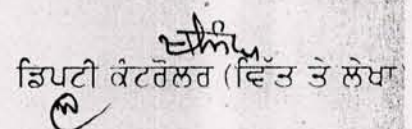 ਡਿਪਟੀ ਕੰਟਰੋਲਰ (ਵਿੱਤ ਤੇ ਲੇਖਾ